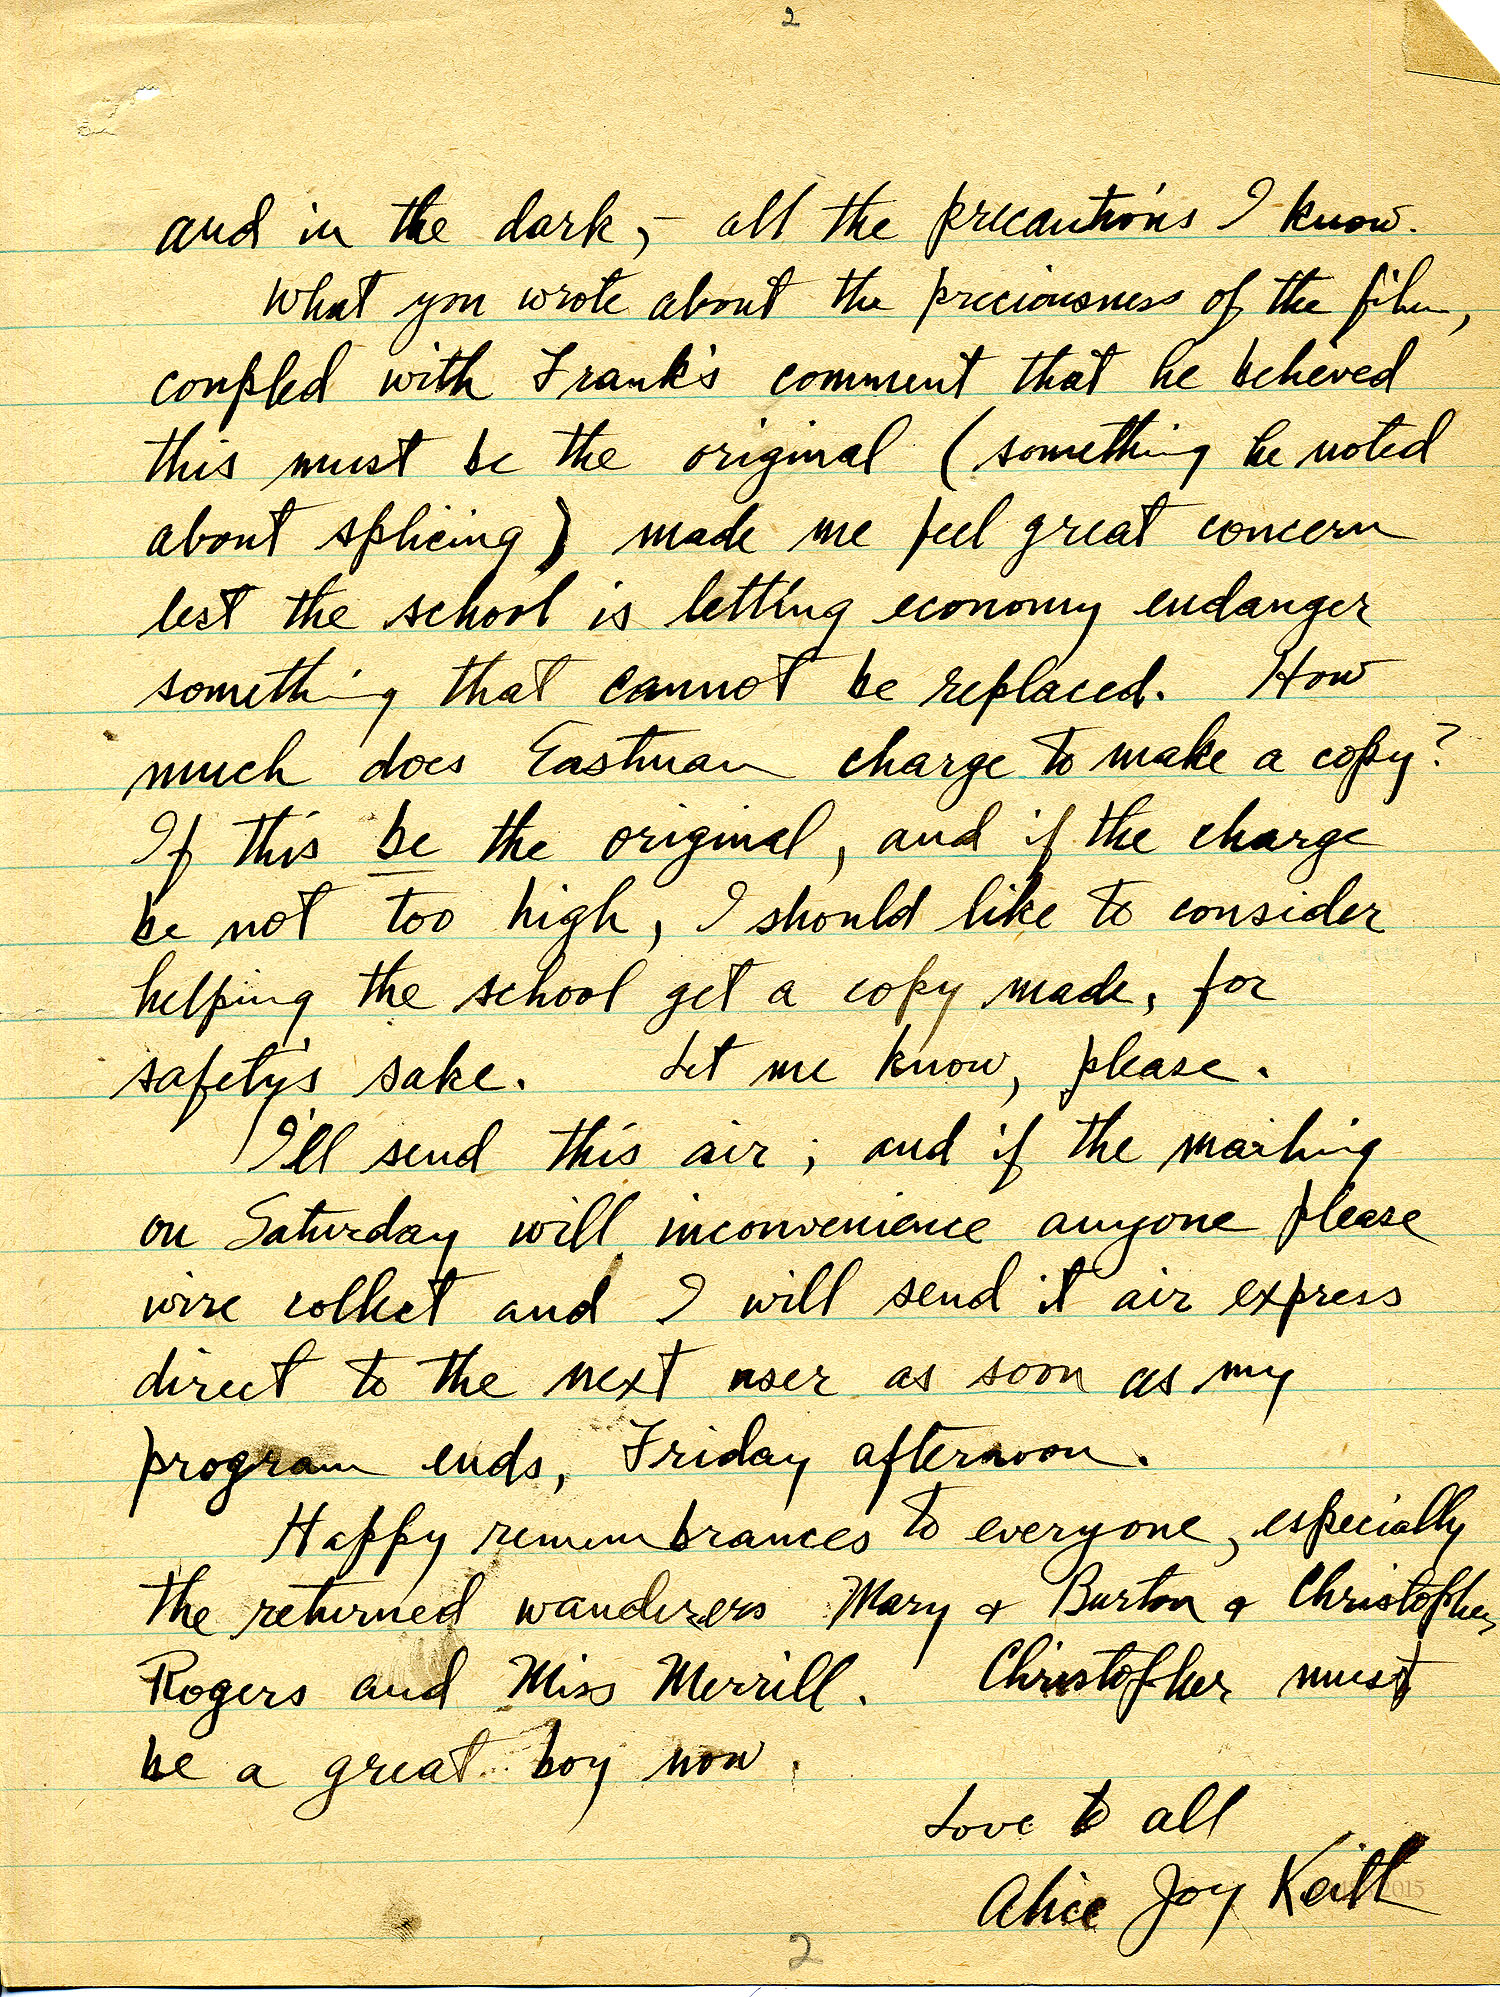 2
and in the dark, - all the precautions I know.
What you wrote about the preciousness of the film,
coupled with Frank's comment that he believed
this must be the original (something he noted
about splicing) made me feel great concern
lest the school is letting economy endanger
something that cannot be replaced. How
much does Eastman charge to make a copy?
If this be the original, and if the charge
be not too high, I should like to consider
helping the school get a copy made, for
safety's sake. Let me know, please.
I'll send this air; and if the mailing
on Saturday will inconvenience anyone please
wire collect and I will send it air express
direct to the next user as soon as my
program ends, Friday afternoon.
Happy remembrances to everyone, especially
the returned wanderers Mary & Burton & Christopher
Rogers and Miss Merrill. Christopher must
be a great boy now.
Love to all
Alice Joy Keith
2015
2